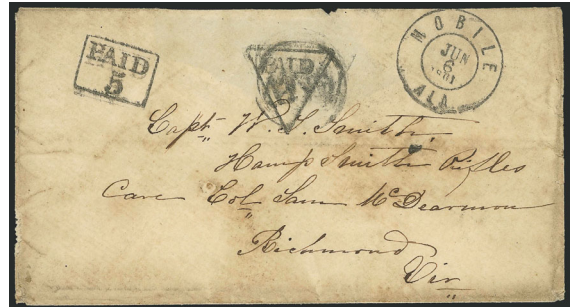 PAID
5
PAID
MOBILE
JUN
6
1861
ALA
Capt. W. T. Smith,
Hamp Smith Rifles
Care Col Sam McDearmon
Richmond
Vir